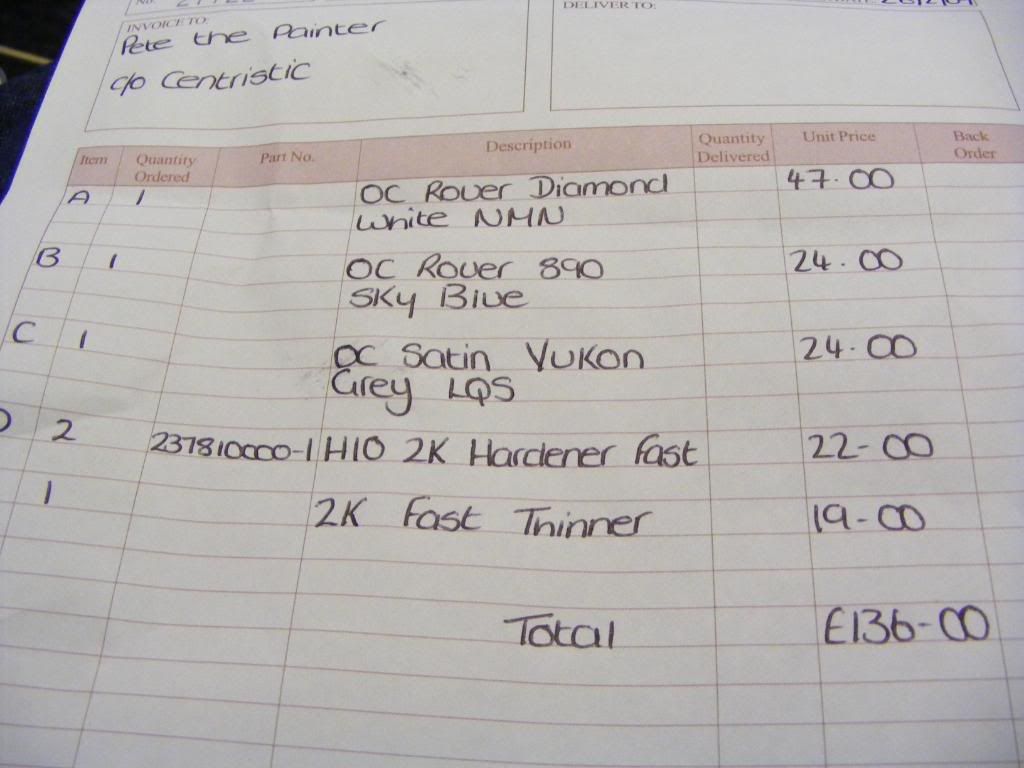 No.
INVOICE TO:
DELIVER TO:
Pete the Painter
c/o Centristic
Item Quantity Ordered Part No. Description Quantity Delivered Unit Price Back Order
A 1 OC Rover Diamond 47.00
White NMN
B 1 OC Rover 890 24.00
Sky Blue
C 1 OC Satin Yukon 24.00
Grey LQS
2 237810000-1 H10 2K Hardener Fast 22-00
1 2K Fast Thinner 19-00
Total £136-00